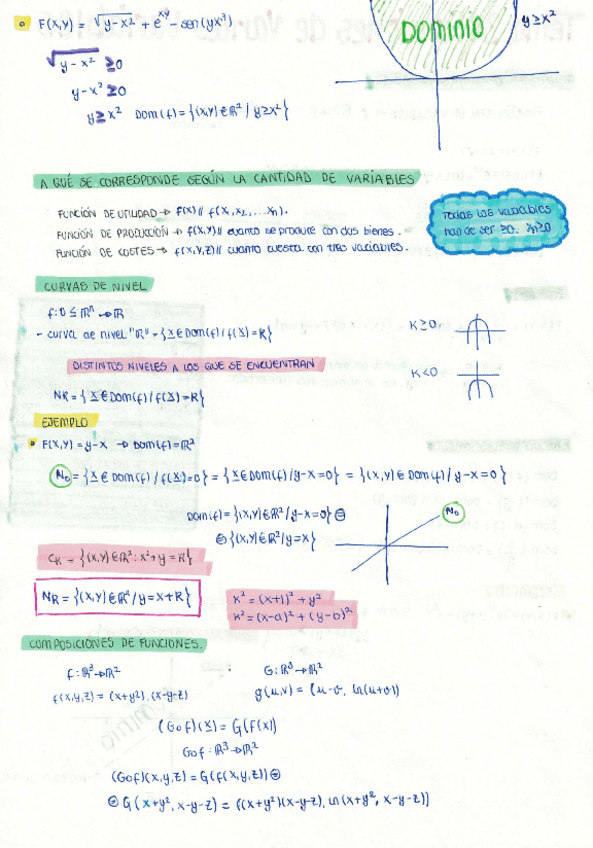 F(x,y) = √y-x² + e^xy - sen(yx³)
DOMINIO
y≥x²
√y-x² ≥0
y-x² ≥0
y≥x² Dom(f) = {(x,y)∈ℝ² / y≥x²}
A QUÉ SE CORRESPONDE SEGÚN LA CANTIDAD DE VARIABLES
FUNCIÓN DE UTILIDAD → f(x) // f(x₁, x₂, ...xₙ).
FUNCIÓN DE PRODUCCIÓN → f(x,y) // cuanto se produce con dos bienes.
FUNCIÓN DE COSTES → f(x,y,z) // cuanto cuesta con tres variables.
Todas las variables
han de ser ≥0. xₙ≥0
CURVAS DE NIVEL
f: D ⊆ ℝⁿ → ℝ
- curva de nivel "K" - {x∈Dom(f) / f(x) = K}
K≥0
DISTINTOS NIVELES A LOS QUE SE ENCUENTRAN
K<0
NK = {x∈Dom(f) / f(x) = K}
EJEMPLO
F(x,y) = y-x → Dom(f) = ℝ²
N₀ = {x∈Dom(f) / f(x)=0} = {x∈Dom(f) / y-x=0} = {(x,y)∈Dom(f) / y-x=0}
Dom(f) = {(x,y)∈ℝ² / y-x=0} ⊜
N₀
⊜ {(x,y)∈ℝ² / y=x}
CK = {(x,y)∈ℝ² : x²+y=K}
NK = {(x,y)∈ℝ² / y=x+K}
K² = (x+1)² + y²
K² = (x-a)² + (y-b)²
COMPOSICIONES DE FUNCIONES.
f: ℝ³→ℝ²
G: ℝ²→ℝ²
f(x,y,z) = (x+y²), (x-y-z)
g(u,v) = (u·v, ln(u+v))
(Gof)(x) = G(f(x))
Gof: ℝ³→ℝ²
(Gof)(x,y,z) = G(f(x,y,z)) ⊜
⊜ G(x+y², x-y-z) = f(x+y²)(x-y-z), ln(x+y², x-y-z)]